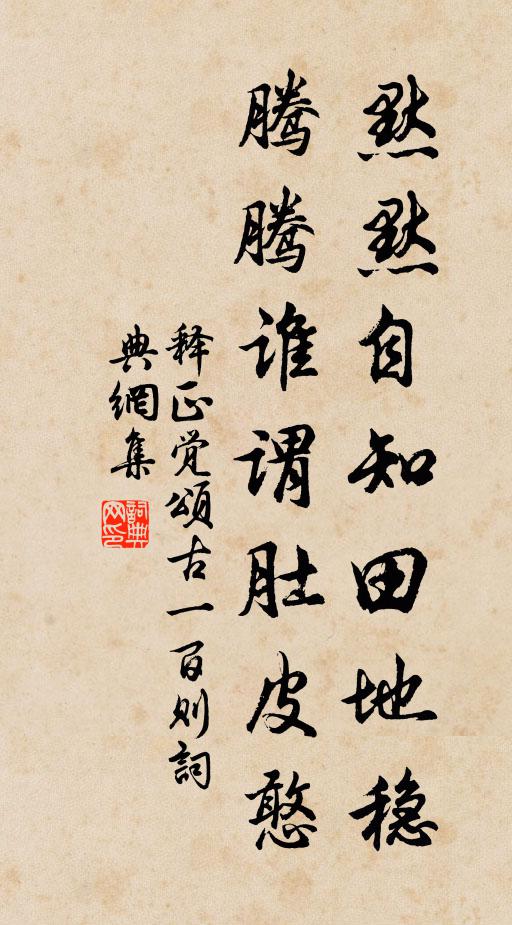 默默自知田地稳
腾腾谁谓肚皮憨
释正觉颂古一百则詞
典網集
詞典
网印